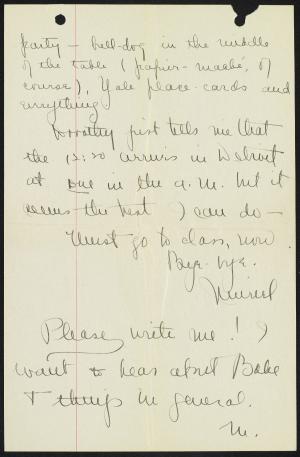 party – bull-dog in the middle
of the table (papier-maché, of
course), Yale place-cards and
everything
Dorothy just tells me that
the 12:30 arrives in Detroit
at one in the a.m. but it
seems the best I can do –
Must go to class, now
Bye-bye.
Muriel
Please write me! I
want to hear about Babe
+ things in general.
M.